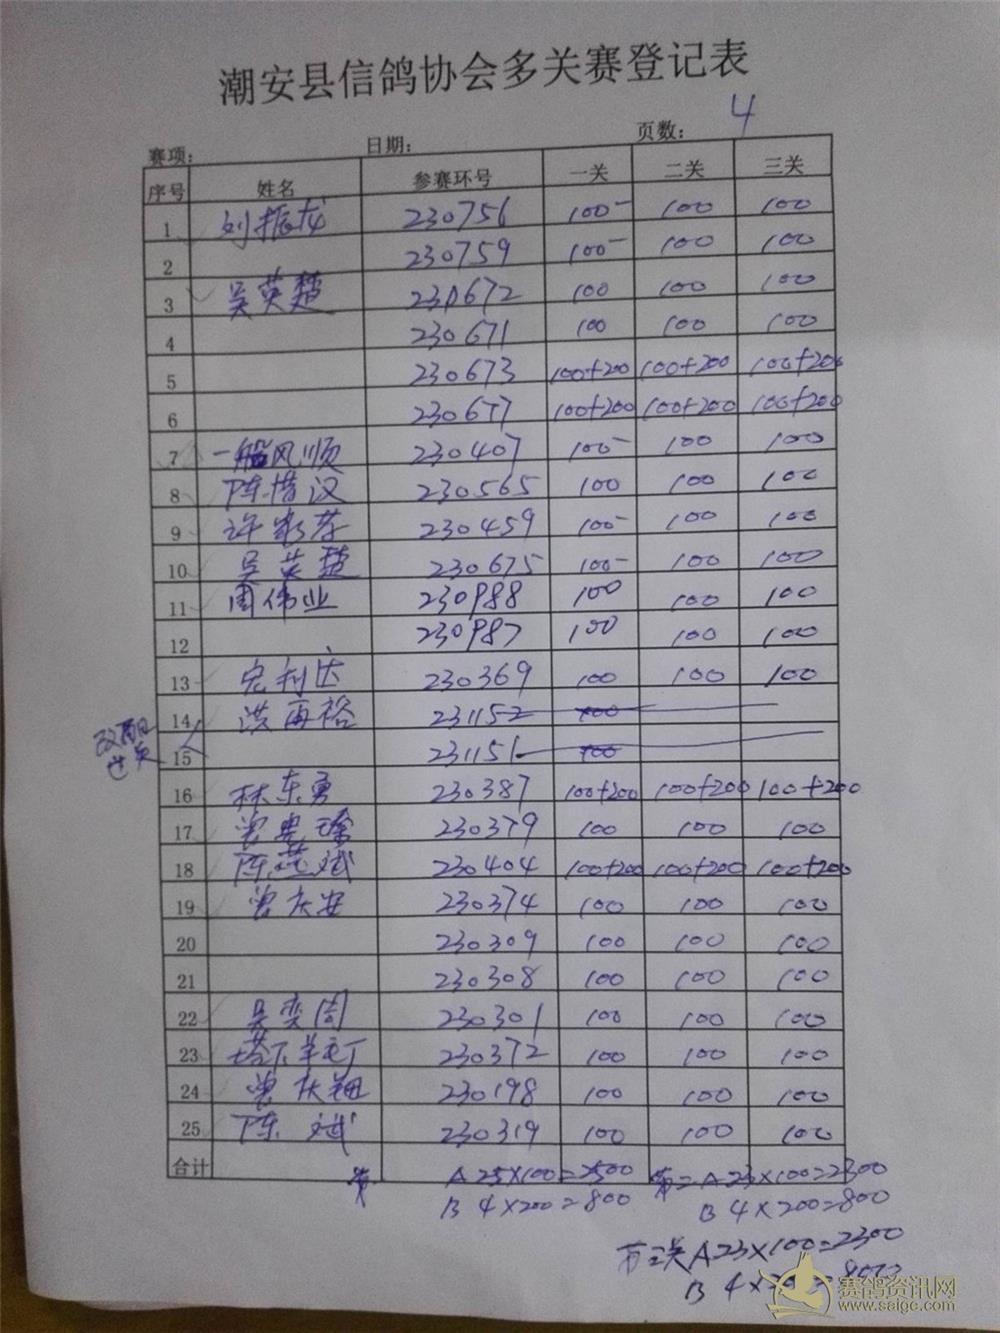 潮安县信鸽协会多关赛登记表
4
赛项: 日期: 页数:
序号 姓名 参赛环号 一关 二关 三关
1 刘振龙 230756 100- 100 100
2 230759 100- 100 100
3 吴英楚 230672 100 100 100
4 230671 100 100 100
5 230673 100+200 100+200 100+200
6 230677 100+200 100+200 100+200
7 一船风顺 230407 100- 100 100
8 陈惜汉 230565 100 100 100
9 许 230459 100- 100 100
10 吴英楚 230675 100- 100 100
11 周伟业 230988 100 100 100
12 230987 100 100 100
13 宏利达 230369 100 100 100
14 洪再裕 231152 100
15 231151 100
16 林东勇 230387 100+200 100+200 100+200
17 曾 230379 100 100 100
18 陈 斌 230404 100+200 100+200 100+200
19 曾庆安 230374 100 100 100
20 230309 100 100 100
21 230308 100 100 100
22 吴奕周 230301 100 100 100
23 塔下羊 230372 100 100 100
24 曾庆 230198 100 100 100
25 陈 斌 230319 100 100 100
合计
第 A 25×100=2500 第二A 23×100=2300
B 4×200=800 B 4×200=800
第三关A 23×100=2300
B 4×200=800
赛鸽资讯网
www.saigc.com